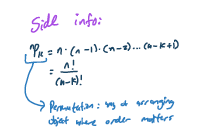 Side info:
nPk = n·(n-1)·(n-2)...(n-k+1)
= n!/(n-k)!
Permutation: way of arranging
object where order matters